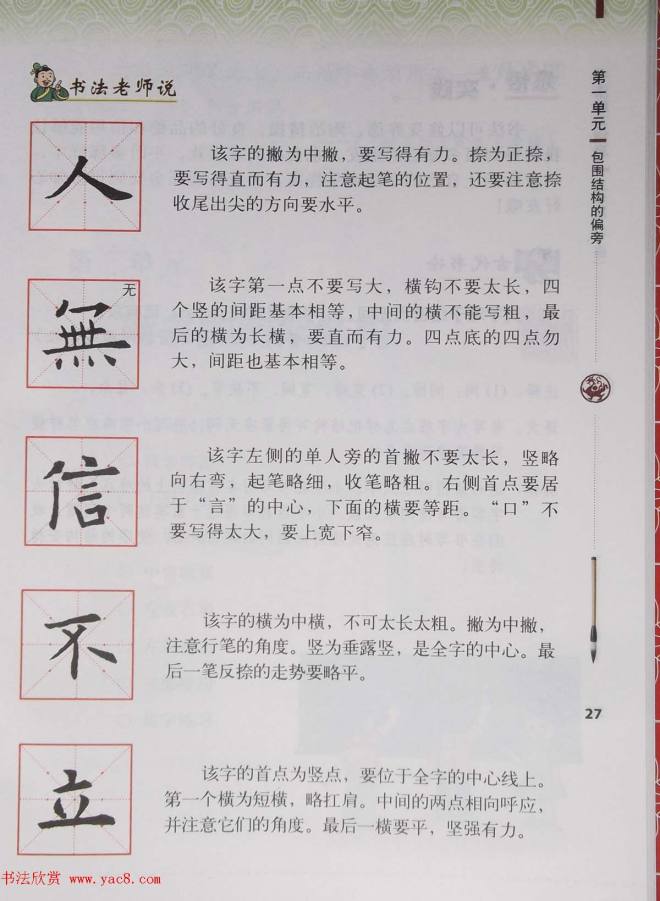 书法老师说
人
该字的撇为中撇，要写得有力。捺为正捺，
要写得直而有力，注意起笔的位置，还要注意捺
收尾出尖的方向要水平。
無
无
该字第一点不要写大，横钩不要太长，四
个竖的间距基本相等，中间的横不能写粗，最
后的横为长横，要直而有力。四点底的四点勿
大，间距也基本相等。
信
该字左侧的单人旁的首撇不要太长，竖略
向右弯，起笔略细，收笔略粗。右侧首点要居
于“言”的中心，下面的横要等距。“口”不
要写得太大，要上宽下窄。
不
该字的横为中横，不可太长太粗。撇为中撇，
注意行笔的角度。竖为垂露竖，是全字的中心。最
后一笔反捺的走势要略平。
立
该字的首点为竖点，要位于全字的中心线上。
第一个横为短横，略扛肩。中间的两点相向呼应，
并注意它们的角度。最后一横要平，坚强有力。
第一单元
包围结构的偏旁
27
书法欣赏 www.yac8.com